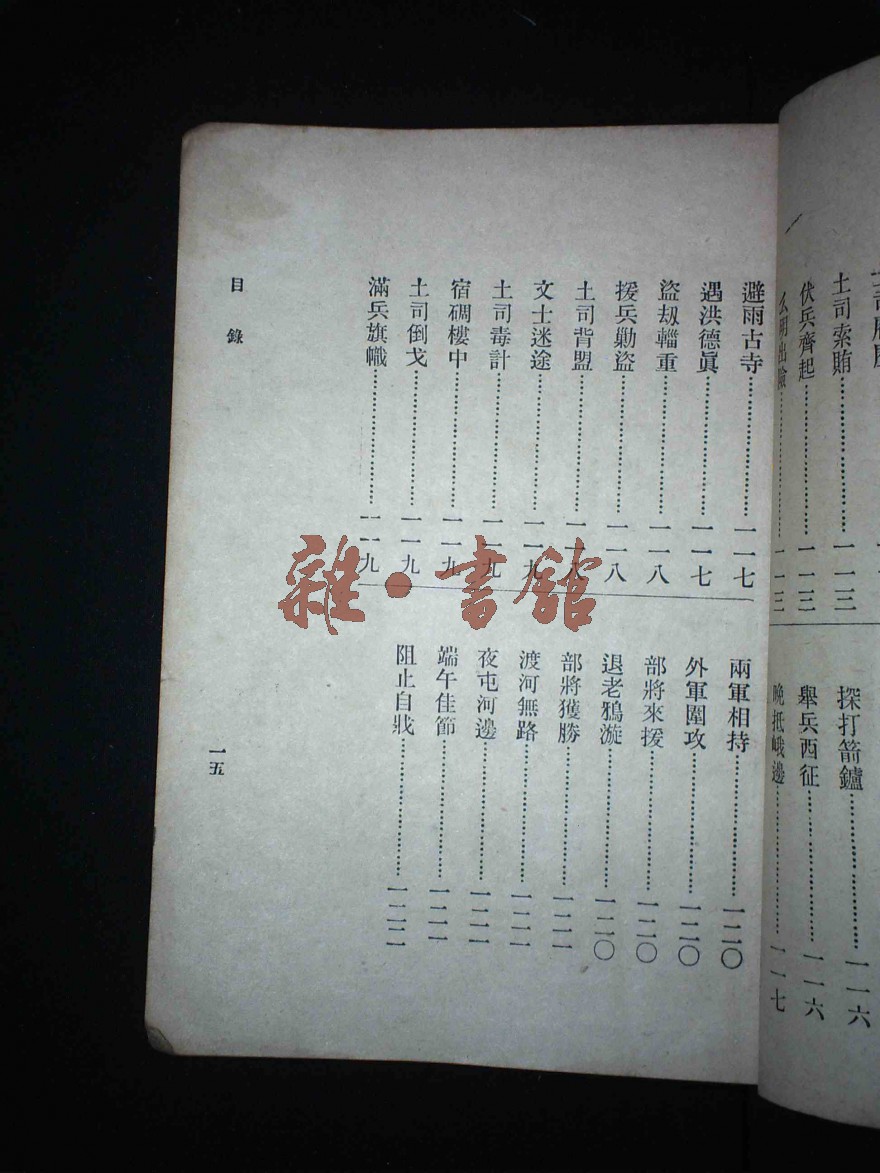 土司索賄………………一一三
伏兵齊起………………一一三
出險………………一一三
探打箭鑪………………一一六
舉兵西征………………一一六
晚抵峨邊………………一一七
避雨古寺………………一一七
遇洪德眞………………一一七
盜刼輜重………………一一八
援兵勦盜………………一一八
土司背盟………………一一八
文士迷途………………一一九
土司毒計………………一一九
宿碉樓中………………一一九
土司倒戈………………一一九
滿兵旗幟………………一一九
兩軍相持………………一二〇
外軍圍攻………………一二〇
部將來援………………一二〇
退老鴉漩………………一二〇
部將獲勝………………一二一
渡河無路………………一二一
夜屯河邊………………一二一
端午佳節………………一二一
阻止自戕………………一二二
目錄
一五
雜·書館